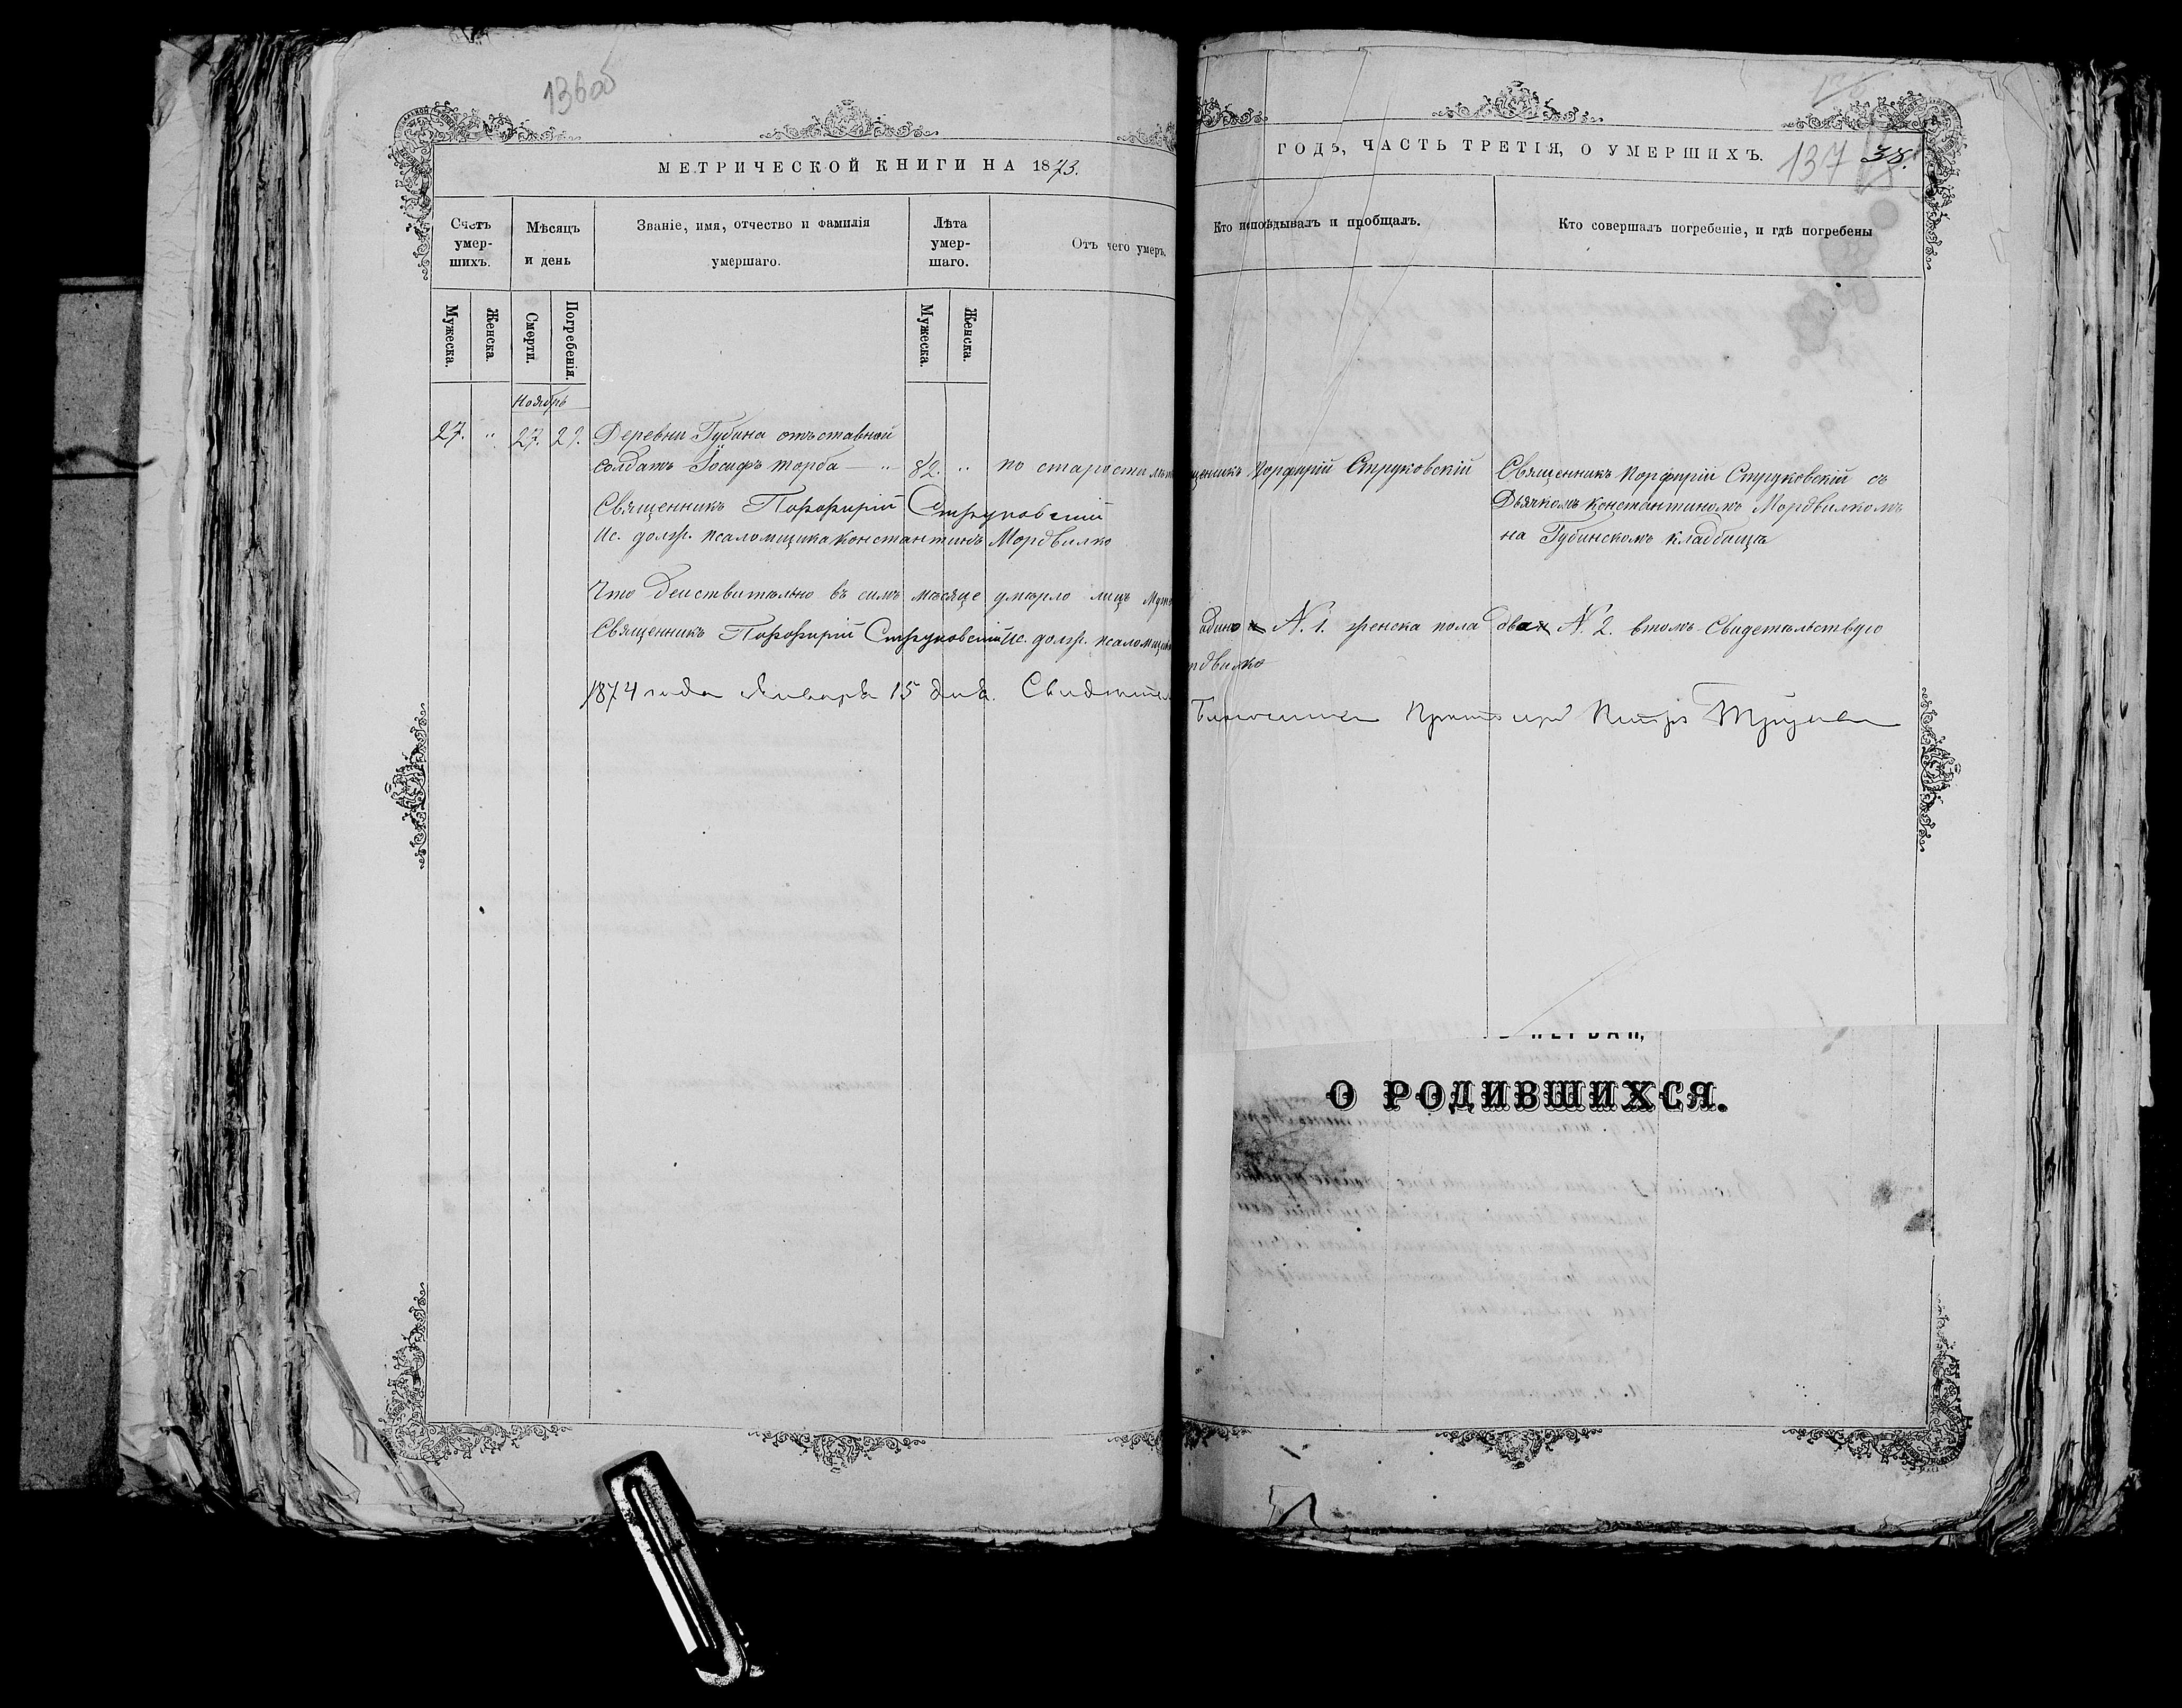 136об
МЕТРИЧЕСКОЙ КНИГИ НА 1873.
Счетъ умершихъ.
Мѣсяцъ и день
Званіе, имя, отчество и фамилія умершаго.
Лѣта умершаго.
Отъ чего умеръ.
Мужеска.
Женска.
Смерти.
Погребенія.
Мужеска.
Женска.
Ноябрь
27. " 27. 29. Деревни Губина отъставной
солдатъ Іосифъ Торба — " 82. " по старости
Священникъ Порфирій Струковскій
Ис. долж. псаломщика Константинъ Мордвилко
Что действительно въ симъ мѣсяце умерло лицъ
Священникъ Порфирій Струковскій Ис. долж.
1874 года Января 15 дня.
ГОДЪ, ЧАСТЬ ТРЕТІЯ, О УМЕРШИХЪ.
137 38.
Кто исповѣдывалъ и пробщалъ.
Кто совершалъ погребеніе, и гдѣ погребены
Порфирій Струковскій
Священникъ Порфирій Струковскій съ
Дьячкомъ Константиномъ Мордвилкомъ
на Губинскомъ кладбищѣ
одино N. 1. женска пола два N. 2. втомъ Свидетельствую
Петръ
О РОДИВШИХСЯ.